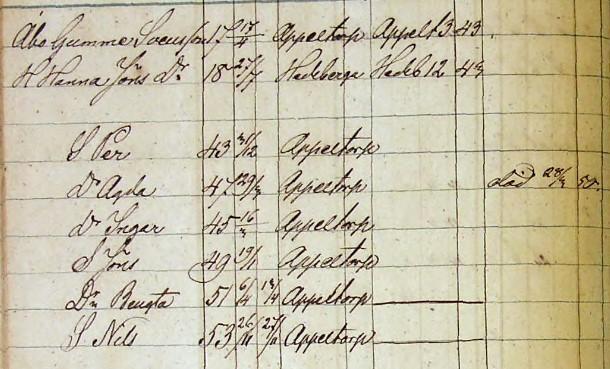 Åbo Gumme Svensson 17 17/4 Appeltorp Appelt 3 43.
H Hanna Jöns Dr 18 27/7 Hadeberga Hadeb 12 43
S Per 43 31/12 Appeltorp
Dr Agda 47 29/3 Appeltorp död 50.
Dr Ingar 45 16/3 Appeltorp
S Jöns 49 19/1 Appeltorp
Dr Bengta 51 6/4 13/4 Appeltorp
S Nils 53 26/11 Appeltorp